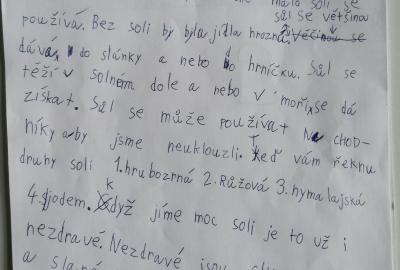 mála soli se
sůl se většinou
používá. Bez soli by byla jídla hrozná. Věčinou se
dává do slánky a nebo do hrníčku. Sůl se
těží v solném dole a nebo v moři se dá
získat. Sůl se může používat na CHOD-
níky aby jsme neuklouzli. Teď vám řeknu
druhy soli 1. hrubozrná 2. Růžová 3. hymalajská
4. jodem. Když jíme moc soli je to už i
nezdravé. Nezdravé jsou
a